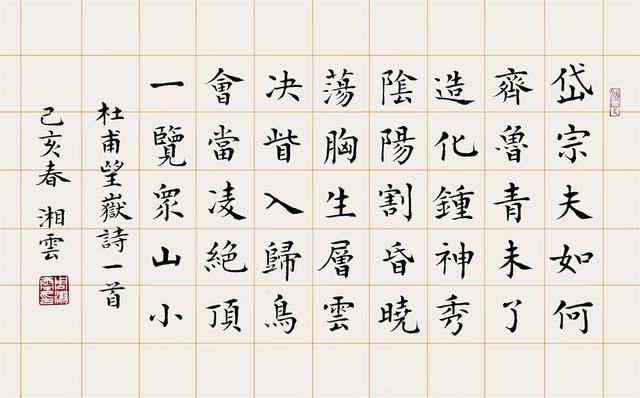 岱宗夫如何
齊魯青未了
造化鍾神秀
陰陽割昏曉
蕩胸生層雲
決眥入歸鳥
會當凌絕頂
一覽眾山小
杜甫望嶽詩一首
己亥春 湘雲